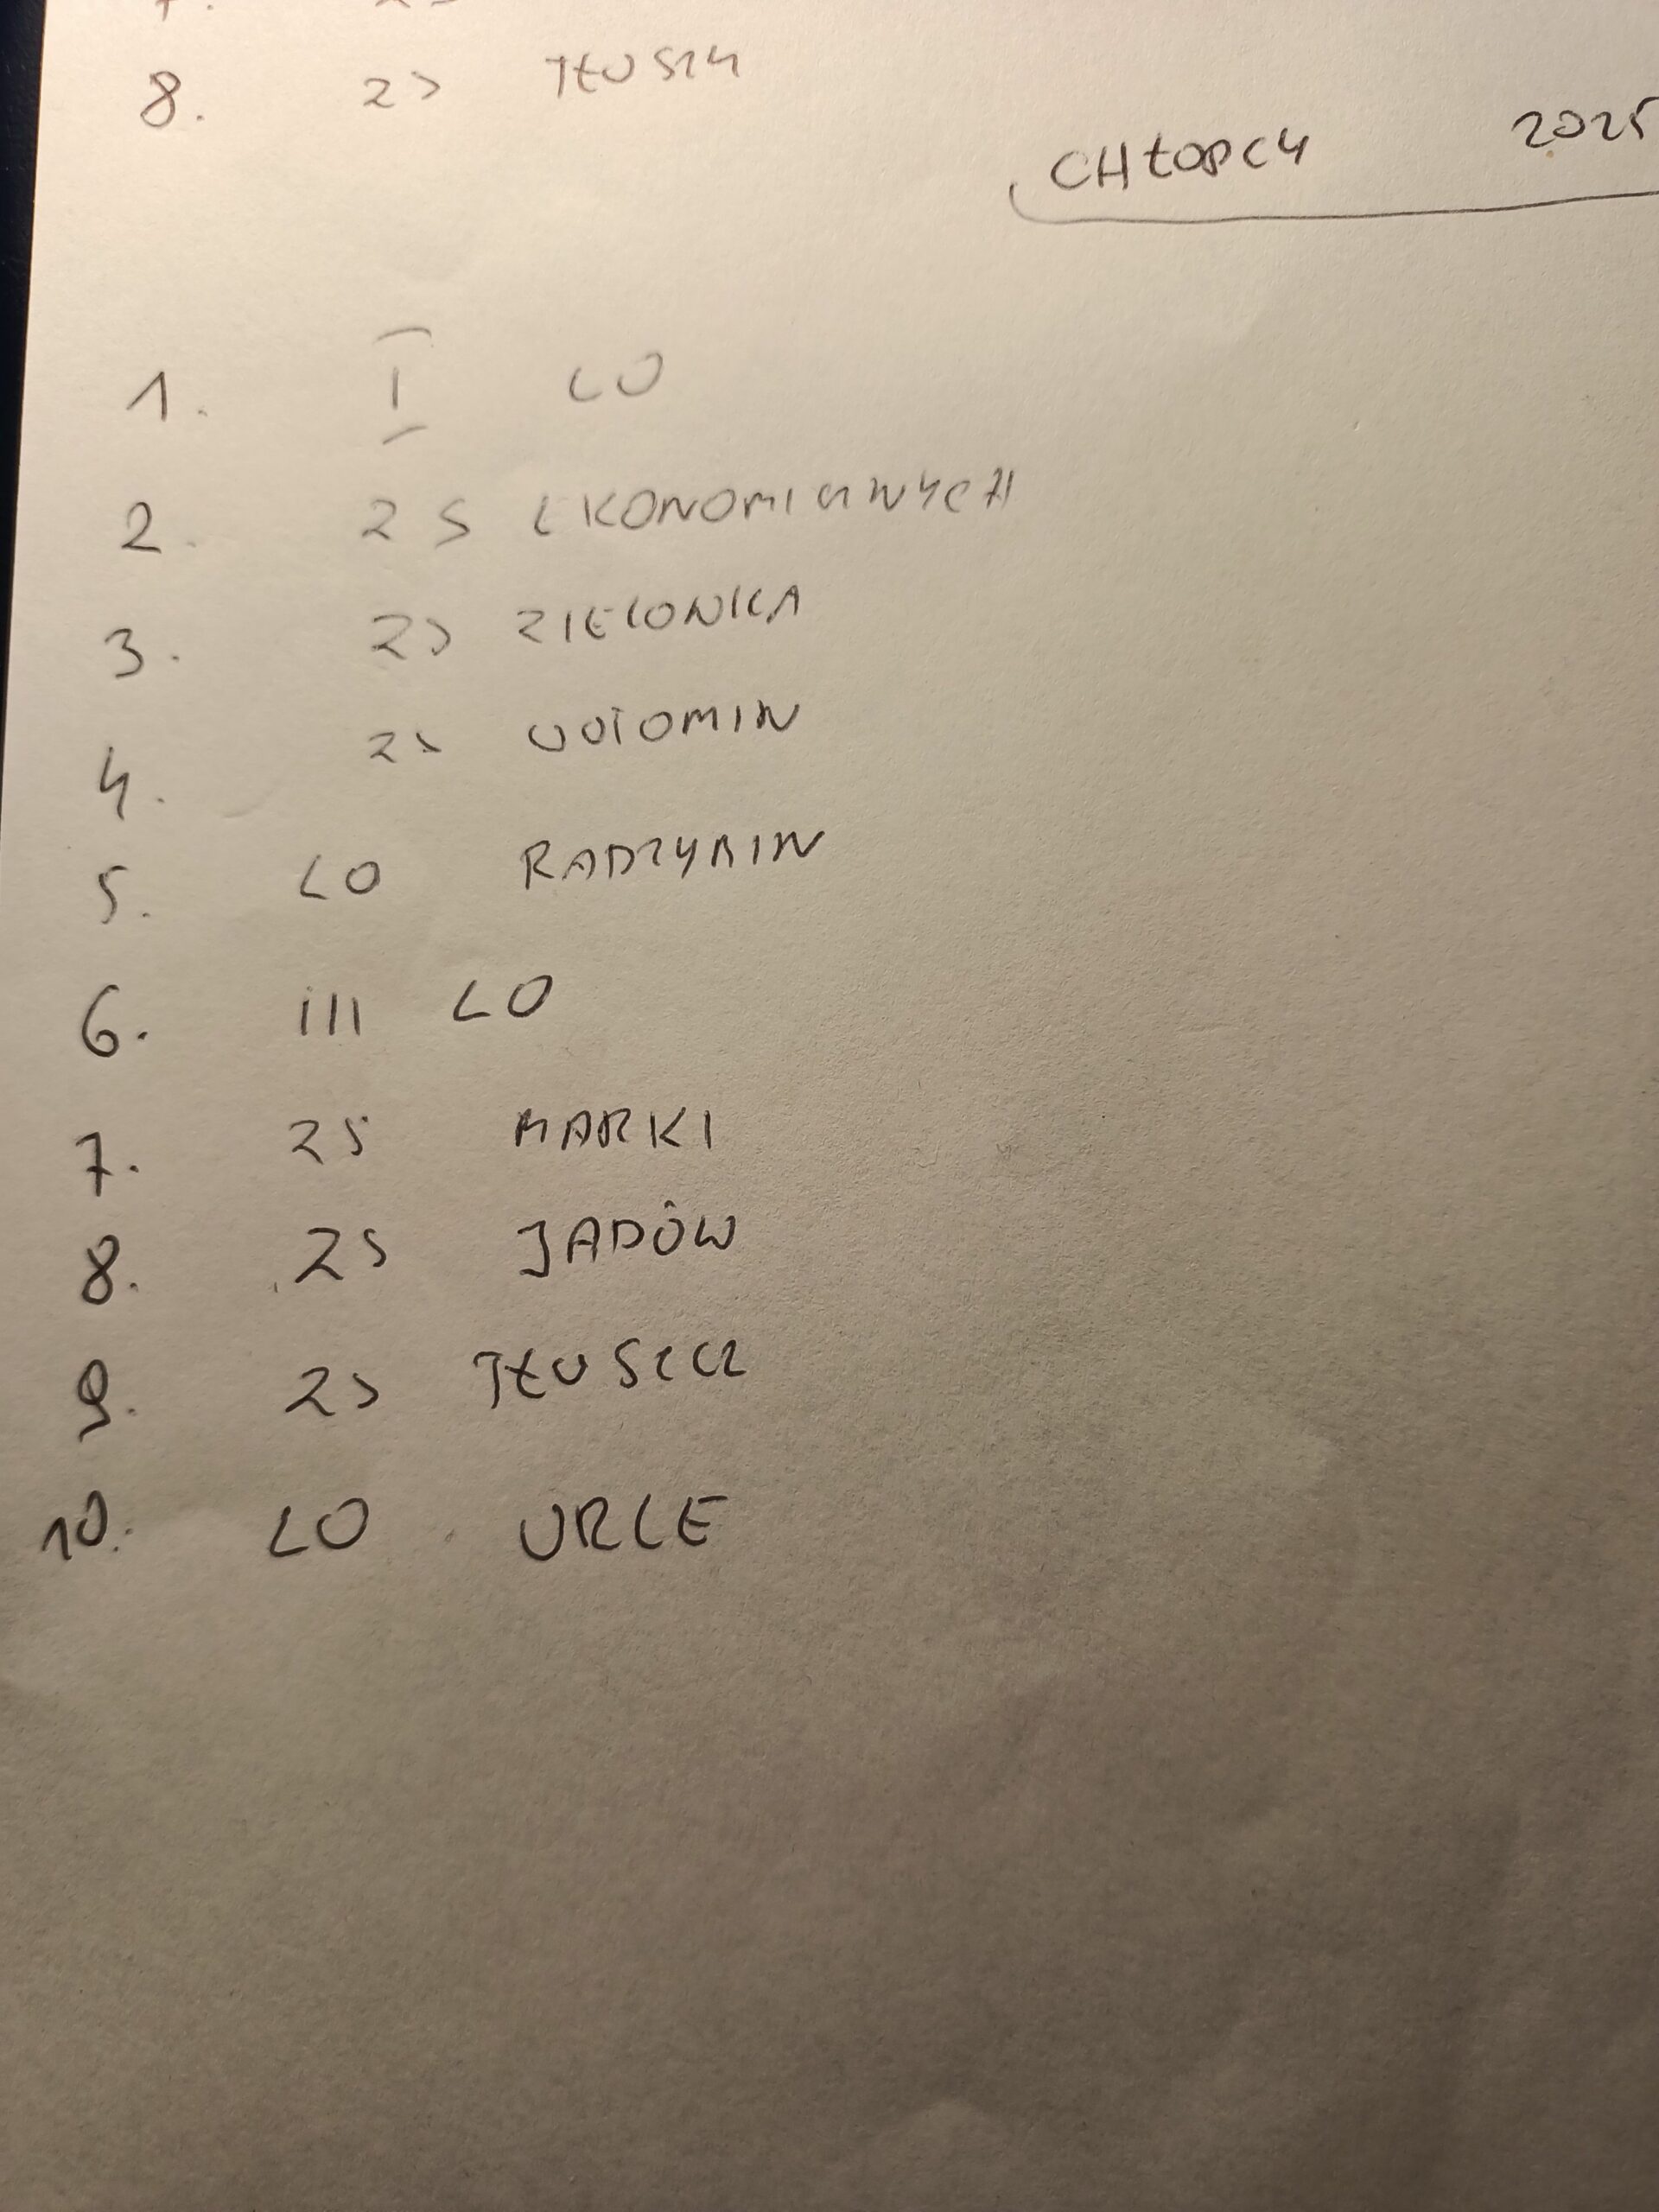 8. ZS TŁUSZCZ
CHŁOPCY 2025
1. I LO
2. ZS EKONOMICZNYCH
3. ZS ZIELONKA
4. ZS WOŁOMIN
5. LO RADZYMIN
6. III LO
7. ZS MARKI
8. ZS JADÓW
9. ZS TŁUSZCZ
10. LO URLE